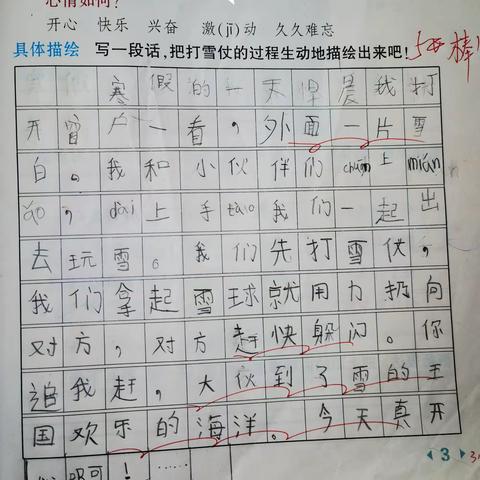 心情如何?
开心 快乐 兴奋 激(jī)动 久久难忘
具体描绘 写一段话,把打雪仗的过程生动地描绘出来吧!
棒
寒假的一天早晨我打
开窗户一看,外面一片雪
白。我和小伙伴们chuān上mián
ǎo,dài上手tào我们一起出
去玩雪。我们先打雪仗,
我们拿起雪球就用力扔向
对方,对方赶快躲闪。你
追我赶,大伙到了雪的王
国欢乐的海洋。今天真开
心啊!……
3